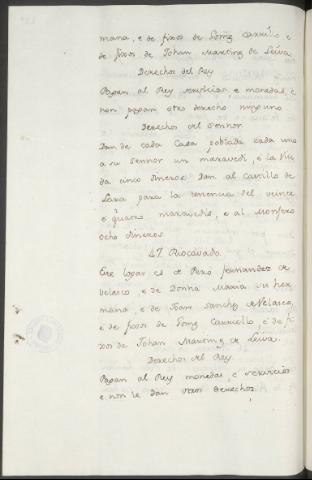 mana, e de fixos de Gomz Carriello e
de fixos de Johan Martinz de Leiva.
Derechos del Rey
Pagan al Rey servicios e monedas, e
non pagan otro derecho ninguno
Derechos del Sennor
Dan de cada Casa poblada cada uno
a su Sennor un maravedi, e la Viu
da cinco dineros. Dan al Castillo de
Lara para la tenencia del veinte
e quatro maravedis, e al Montero
ocho dineros.
47. Riocavado.
Este logar es de Pero Fernandez de
Velasco, e de Donna Maria su her
mana, e de Joan Sanchez de Velasco,
e de fixos de Gomz Carriello, e de fi
xos de Johan Martinz de Leiva.
Derechos del Rey
Pagan al Rey monedas, e servicios
e non le dan otros derechos.